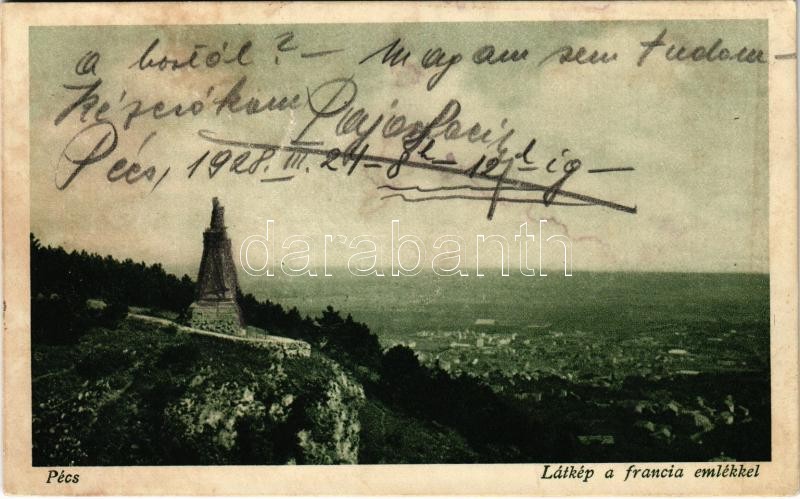 a bostól? – Magam sem tudom –
Kézcsókom
Pécs, 1928. III. 24 – 8h – 12 ig –
darabanth
Pécs
Látkép a francia emlékkel